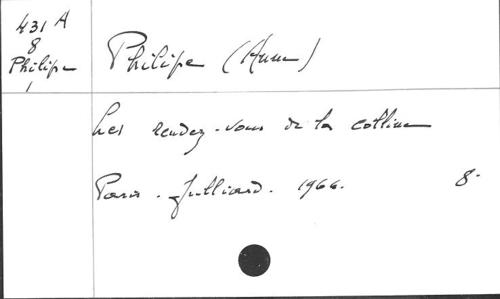 431 A
8
Philipe
1
Philipe (Anne)
Les rendez-vous de la colline
Paris. Julliard. 1966. 8-